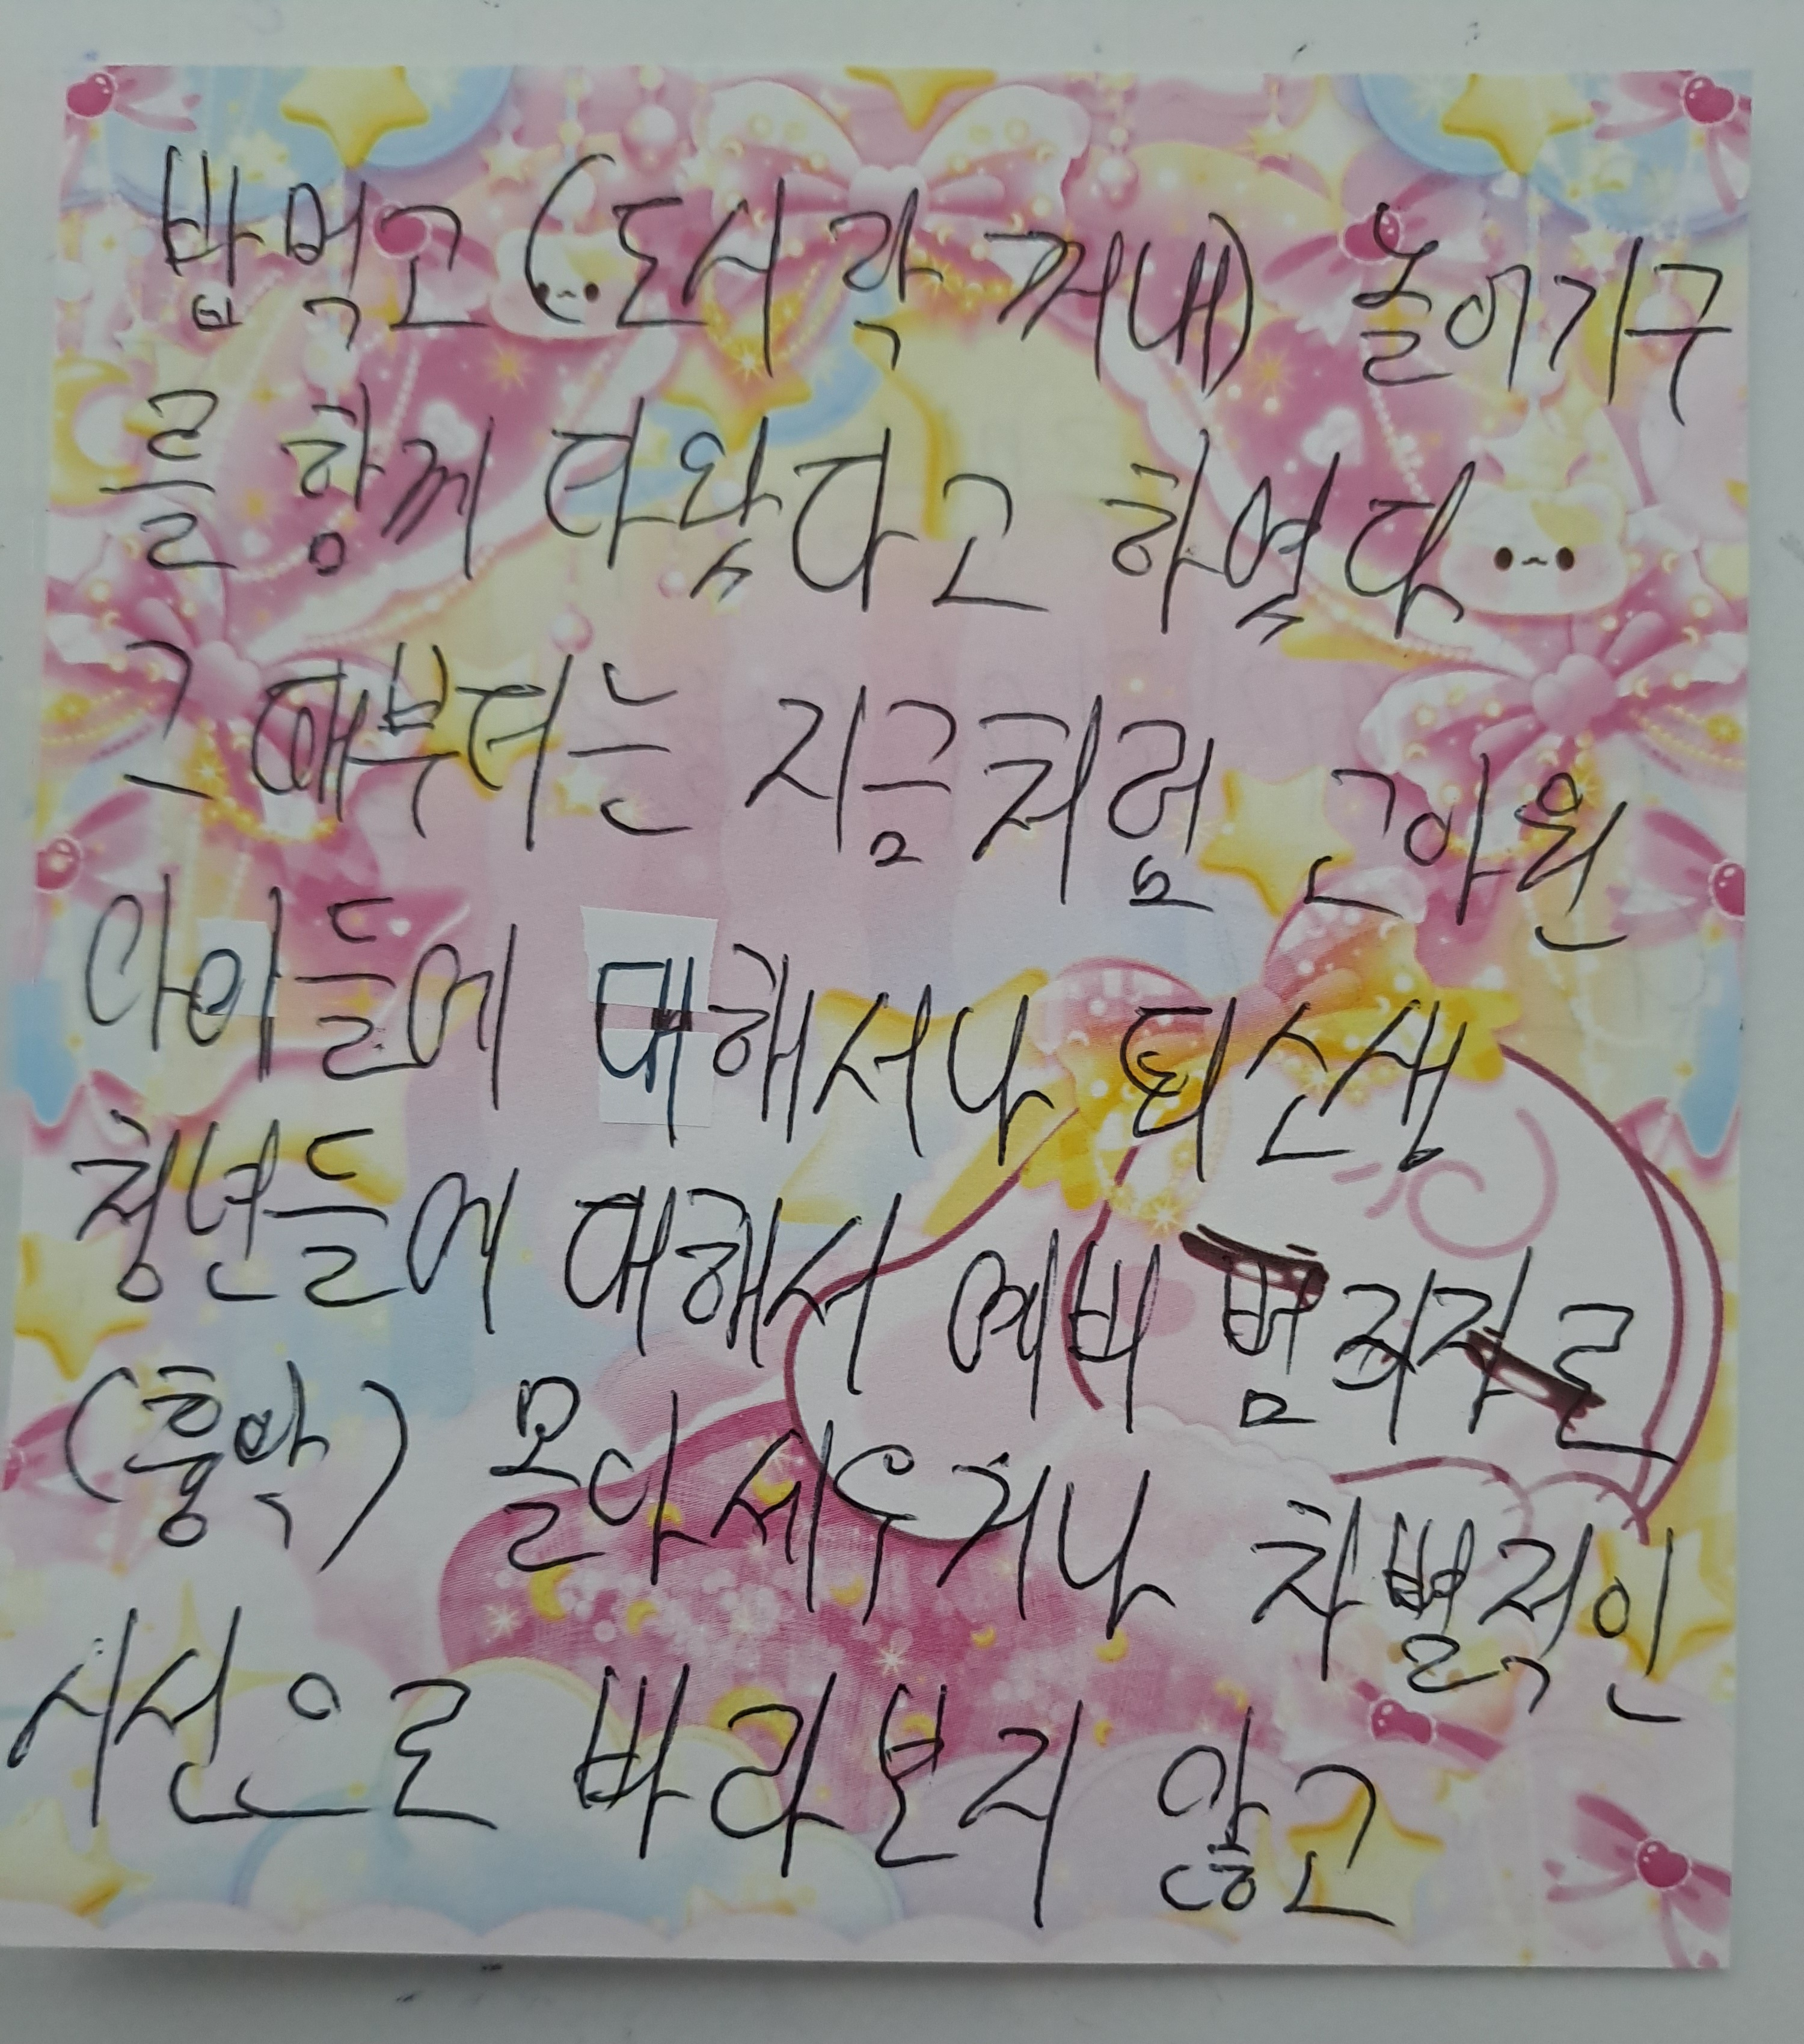 밥 먹고 (도시락 꺼내) 놀이기구
를 함께 타왔다고 하였다
그 때부터는 지금처럼 고아원
아이들에 대해서나 퇴소생
청년들에 대해서 예비 범죄자로
(흉악) 몰아세우거나 차별적인
시선으로 바라본지 않고